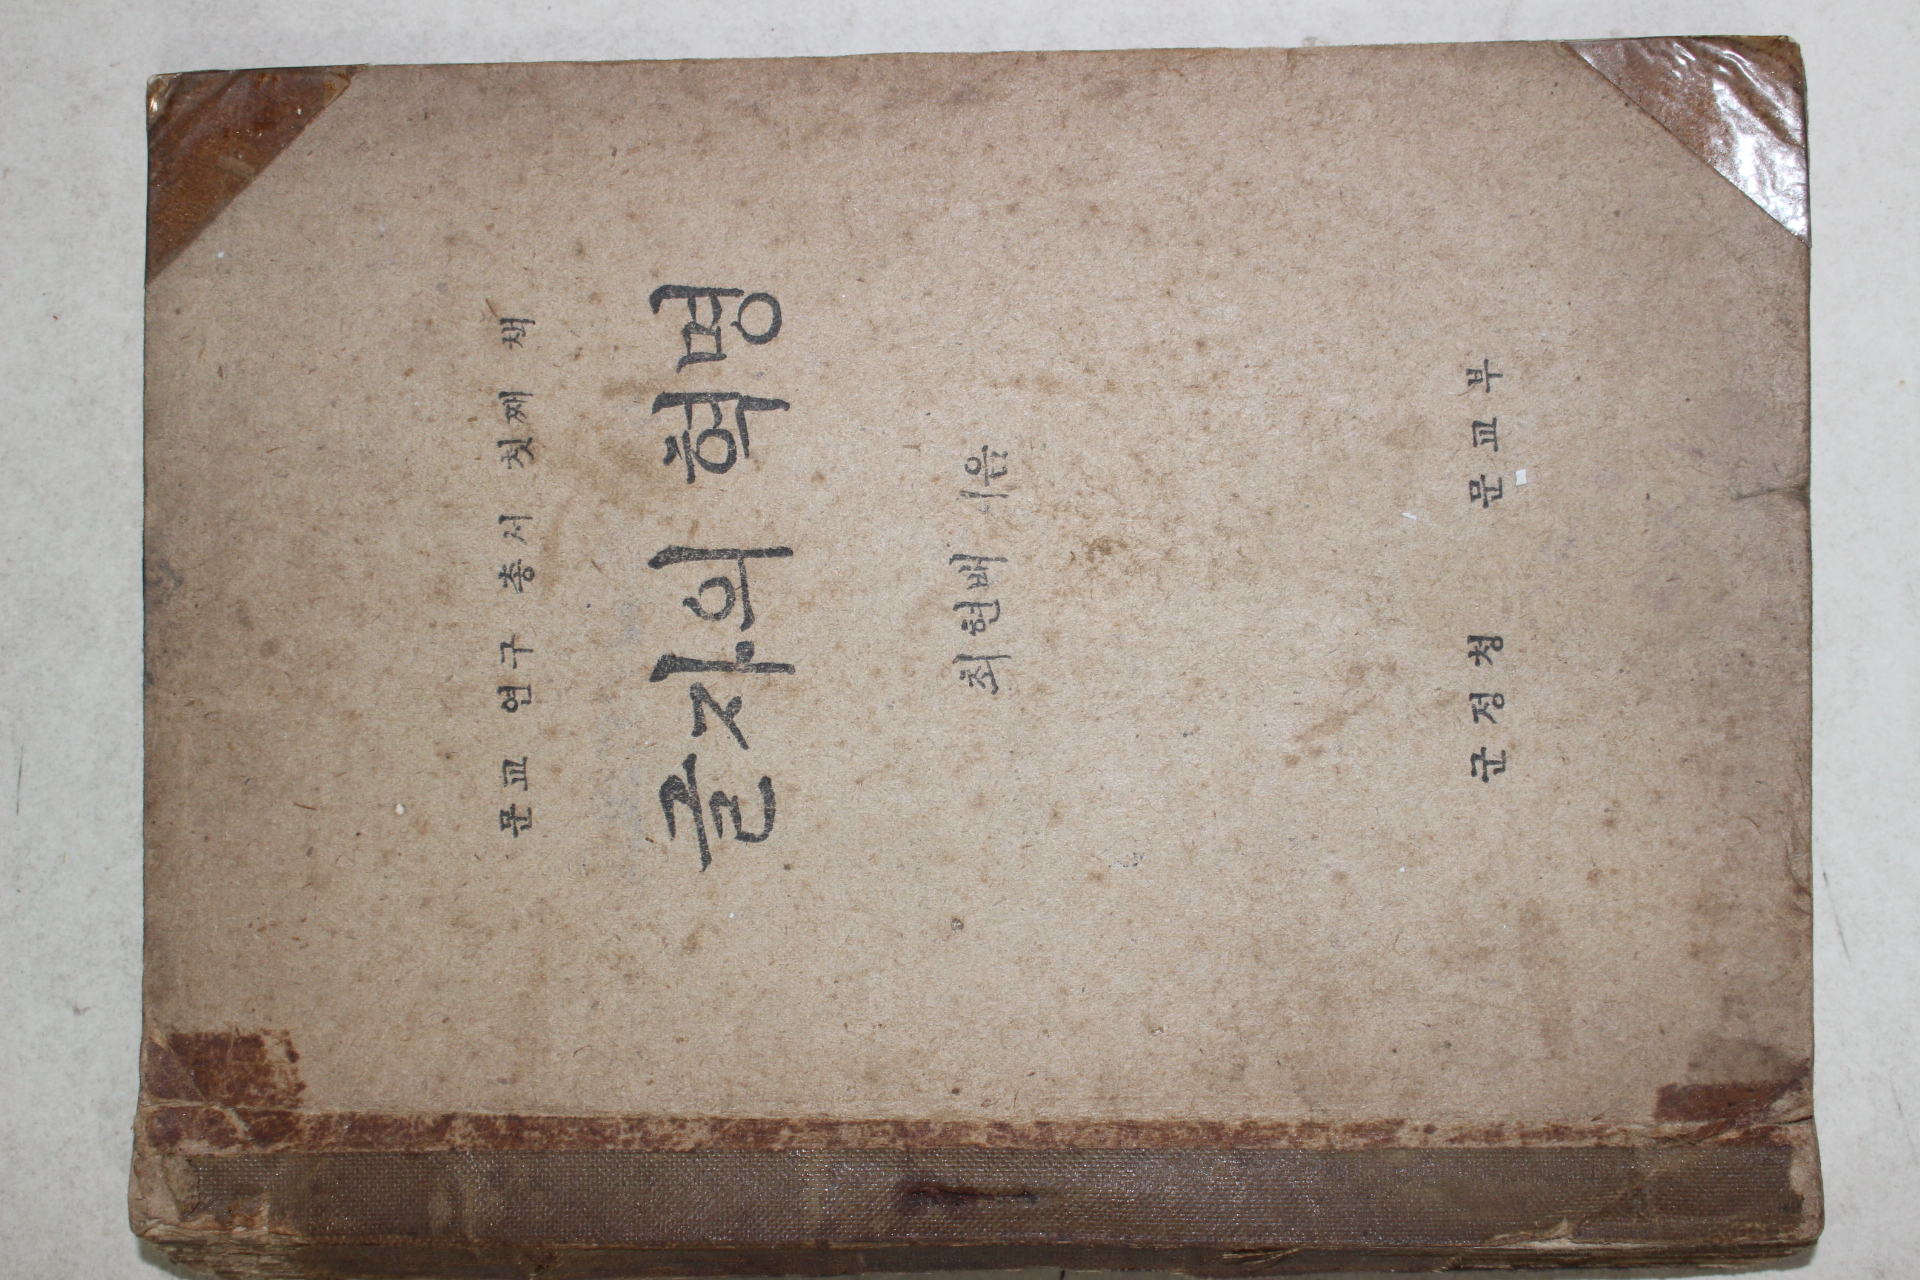 문교 연구 총서 첫째 책
글자의 혁명
최현배 지음
군정청 문교부